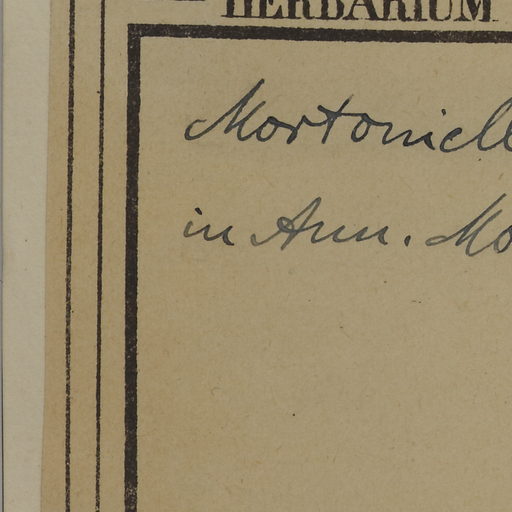 HERBARIUM
Mortoniell
in Ann. Mo